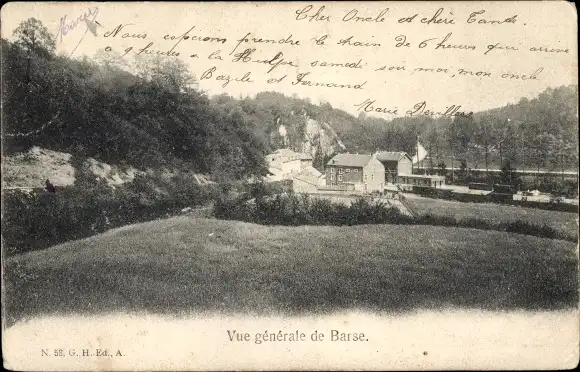 Cher Oncle et chère Tante.
Nous esperons prendre le train de 6 heures qui arrive
a 9 heures a La Hulpe samedi soir moi, mon oncle
Bazile et Fernand
Marie Devillers
Vue générale de Barse.
N. 58, G. H. Ed., A.